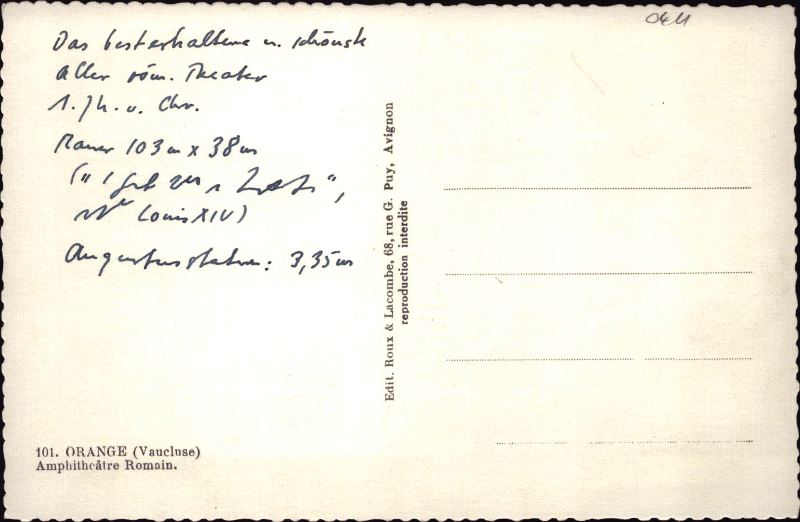 Das besterhaltene u. schönste
aller röm. Theater
1. Jh. v. Chr.
Mauer 103 m x 38 m
Louis XIV)
Augustusstatue: 3,35 m
101. ORANGE (Vaucluse)
Amphithéâtre Romain.
Edit. Roux & Lacombe, 68, rue G. Puy, Avignon
reproduction interdite